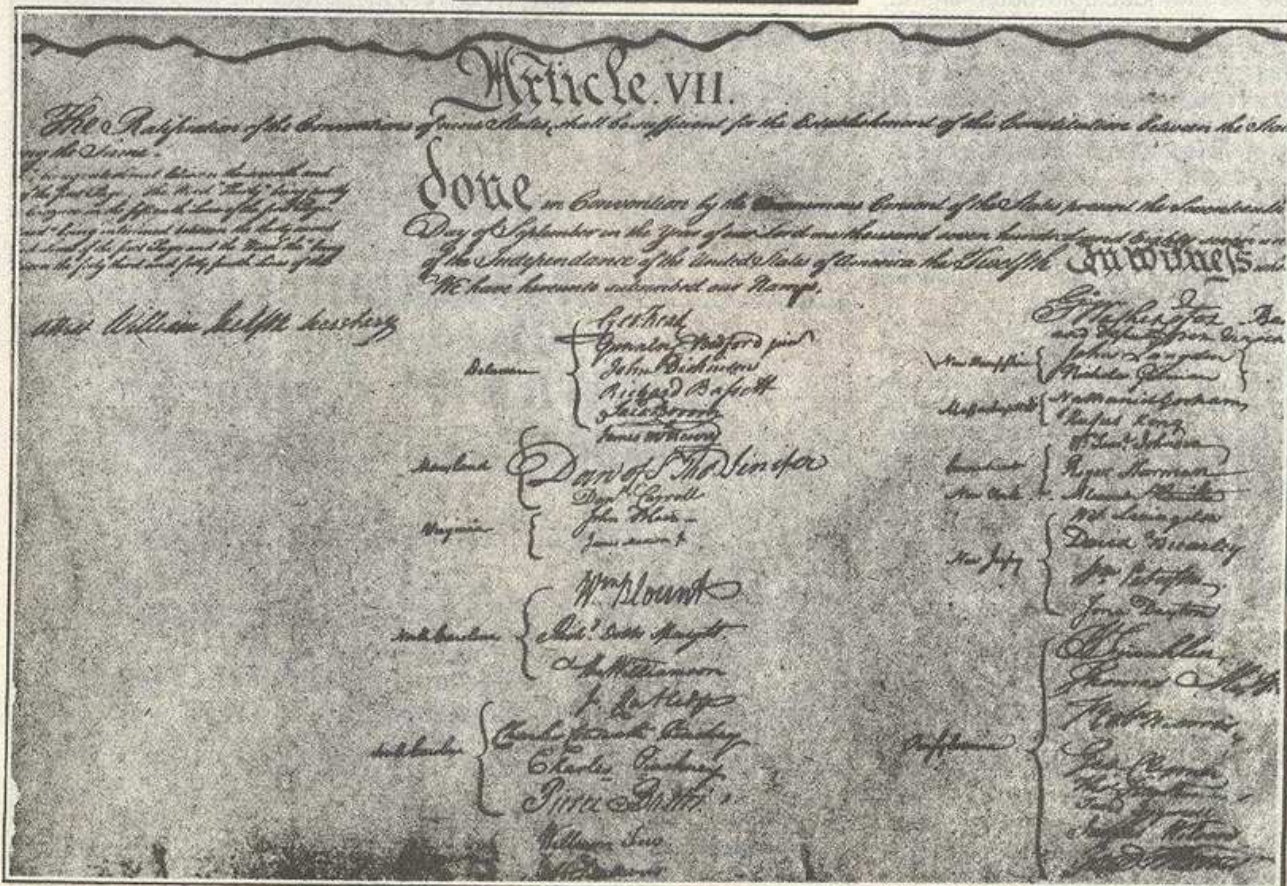 Article. VII.
The Ratification of the Conventions of nine States, shall be sufficient for the Establishment of this Constitution between the
the Same.
the Word "Thirty" being partly
in the fifteenth Line of the first Page,
being interlined between the thirty second
of the first Page and the Word "the" being
between the forty third and forty fourth Lines of the
Attest William Jackson Secretary
done in Convention by the Unanimous Consent of the States present the Seventeenth
Day of September in the Year of our Lord one thousand seven hundred and Eighty seven
of the Independance of the United States of America the Twelfth In Witness
We have hereunto subscribed our Names,
Delaware
Geo: Read
Gunning Bedford jun
John Dickinson
Richard Bassett
Jaco: Broom
Maryland
James McHenry
Dan of St Thos Jenifer
Danl Carroll
Virginia
John Blair
James Madison Jr
North Carolina
Wm Blount
Richd Dobbs Spaight
Hu Williamson
South Carolina
J. Rutledge
Charles Cotesworth Pinckney
Charles Pinckney
Pierce Butler
William Few
Go: Washington
and deputy from
New Hampshire
John Langdon
Nicholas Gilman
Massachusetts
Nathaniel Gorham
Rufus King
Connecticut
Wm Saml Johnson
Roger Sherman
New York
Alexander Hamilton
New Jersey
Wil: Livingston
David Brearley
Wm Paterson
Jona: Dayton
Pensylvania
B Franklin
Thomas Mifflin
Robt Morris
Geo. Clymer
James Wilson